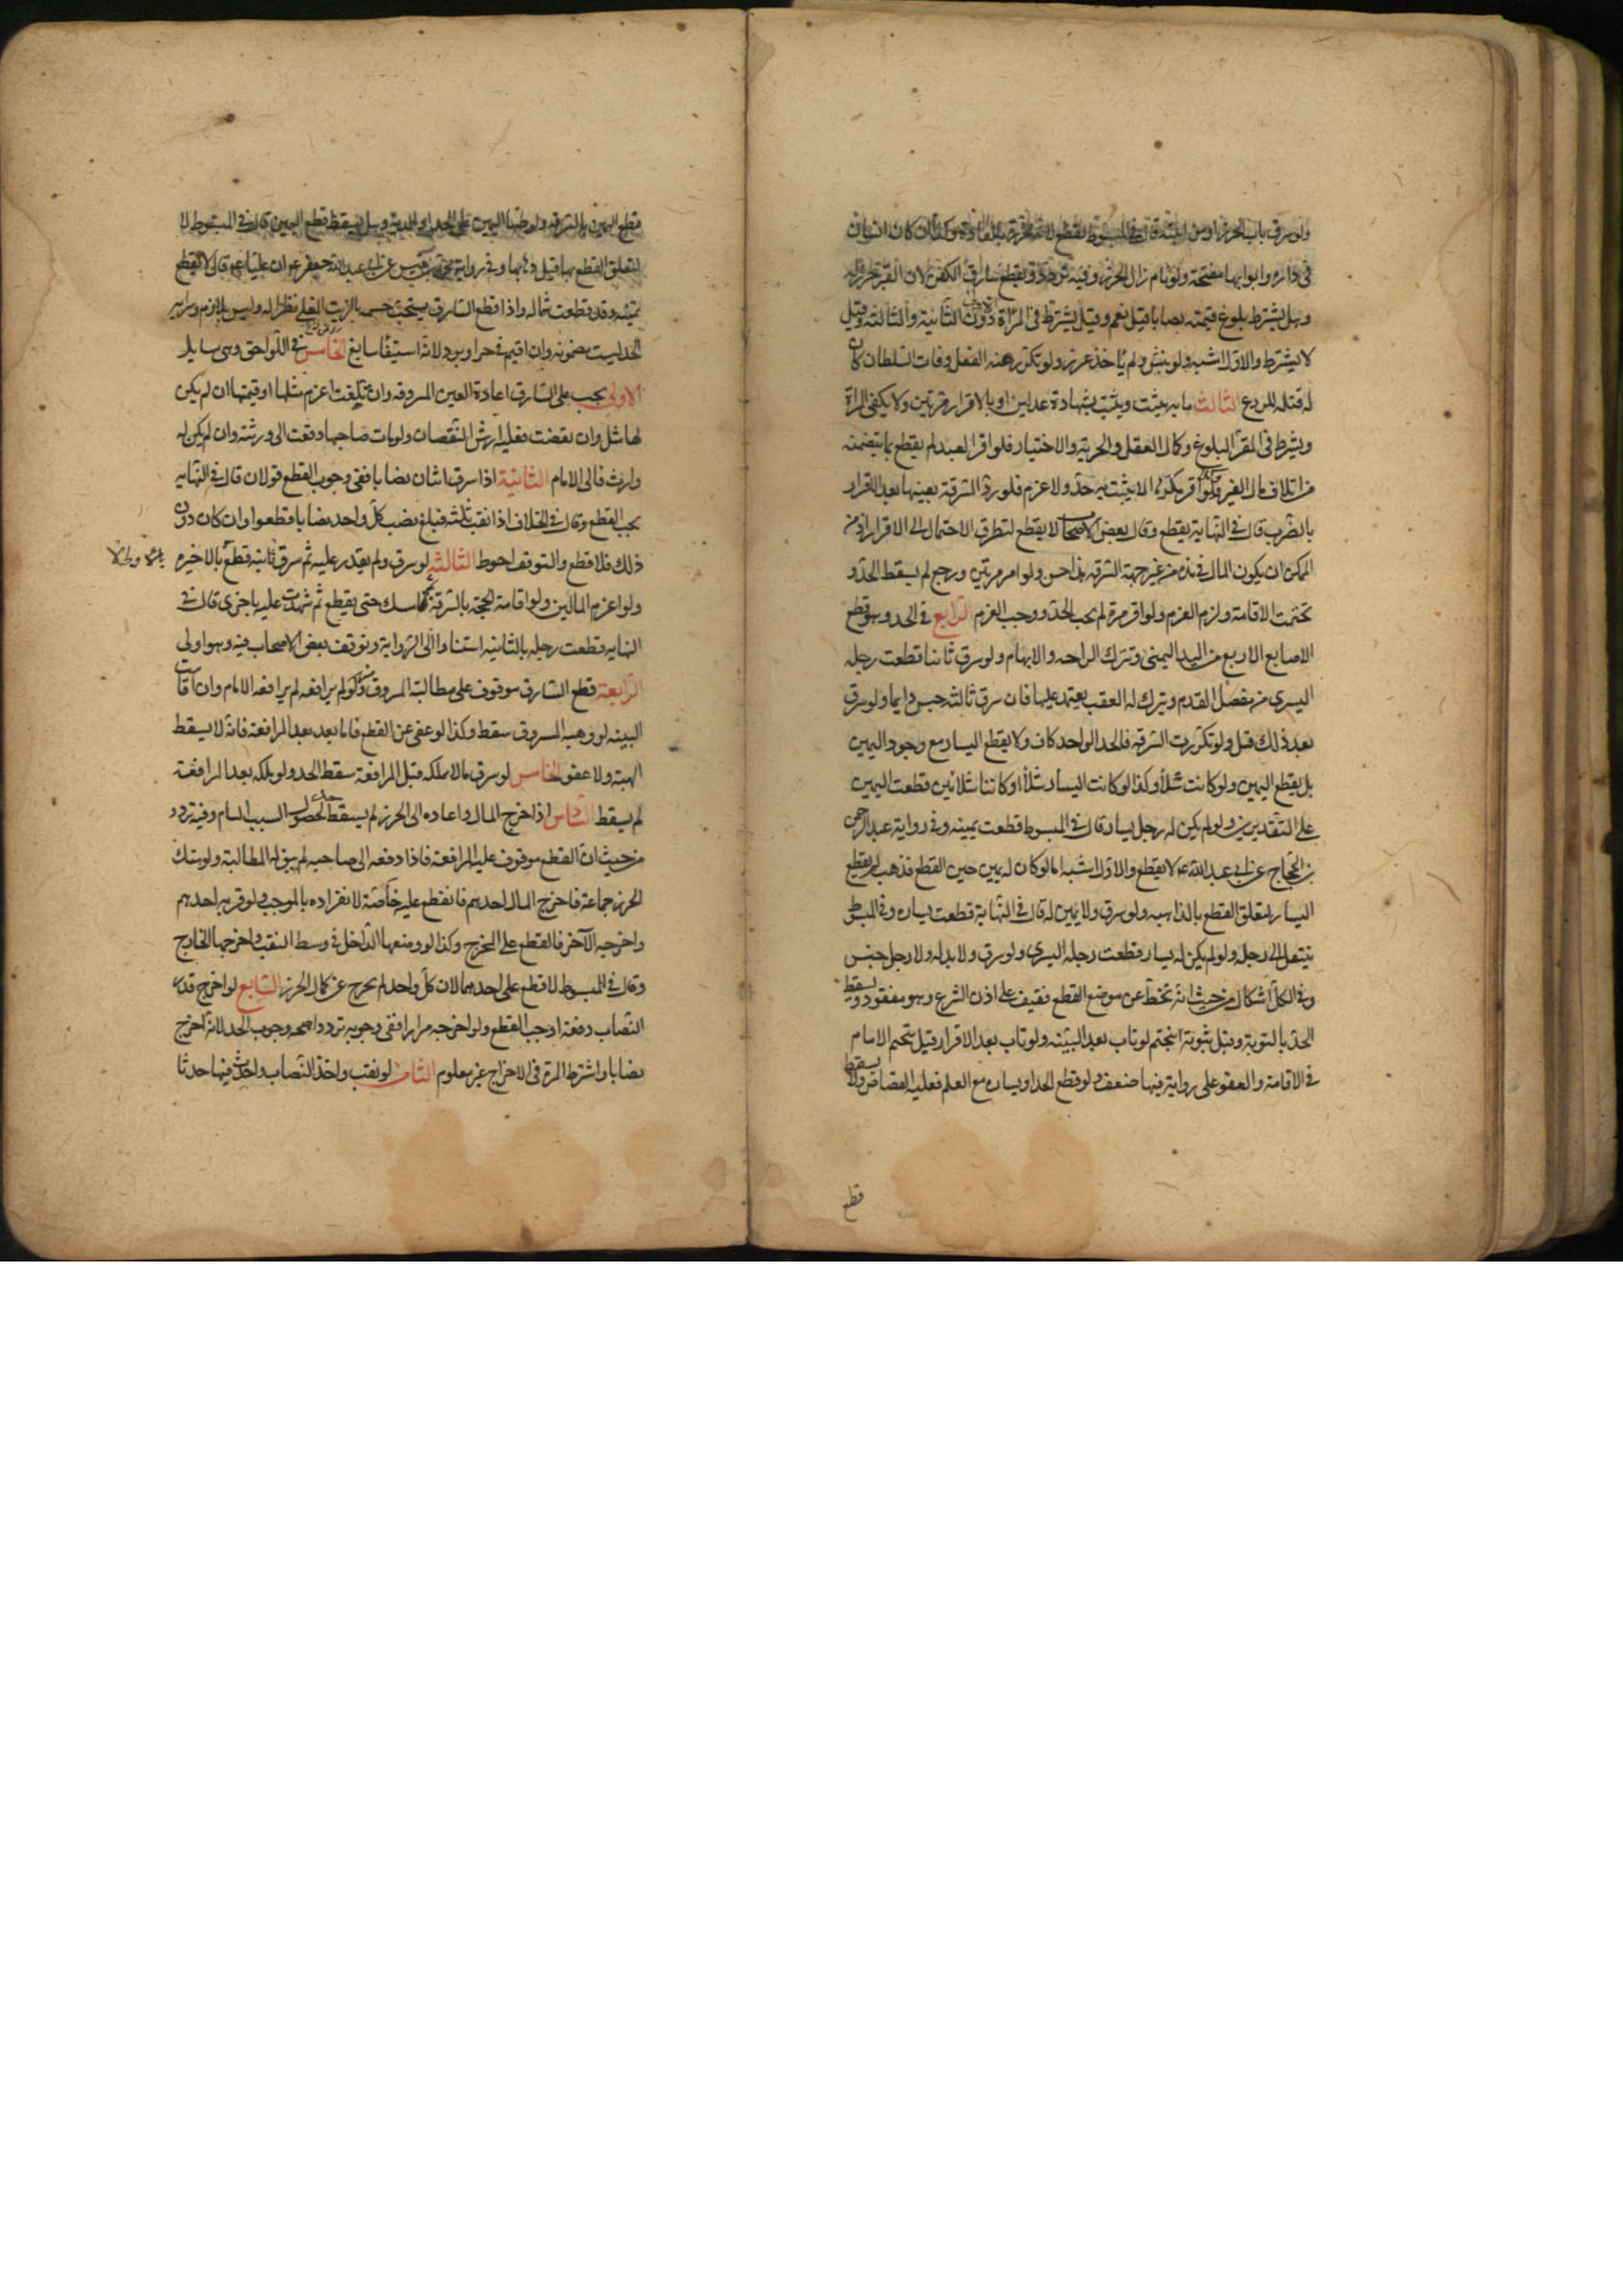 ولو سرق باب الحرز او من ابنيته قال في المبسوط يقطع لانه محرز بالعادة وكذا ان كان الانسان
في داره وابوابها مفتحة ولو نام زال الحرز وفيه تردد ويقطع سارق الكفن لان القبر حرز له
وهل يشترط بلوغ قيمته نصابا قيل نعم وقيل يشترط في المرة الاولى دون الثانية والثالثة وقيل
لا يشترط والاول اشبه ولو نبش ولم يأخذ عزر ولو تكرر منه الفعل وفات السلطان كان
له قتله للردع الثالث ما به يثبت ويثبت بشهادة عدلين او بالاقرار مرتين ولا يكفى المرة
ويشترط في المقر البلوغ وكمال العقل والحرية والاختيار فلو اقر العبد لم يقطع لما يتضمنه
من اتلاف مال الغير وكذا لو اقر مكرها لا يثبت به حد ولا غرم فلو رد السرقة بعينها بعد الاقرار
بالضرب قال في النهاية يقطع وقال بعض الاصحاب لا يقطع لتطرق الاحتمال الى الاقرار اذ من
الممكن ان يكون المال في يده من غير جهة السرقة هذا حسن ولو اقر مرتين ورجع لم يسقط الحد و
تحتمت الاقامة ولزم الغرم ولو اقر مرة لم يجب الحد ووجب الغرم الرابع في الحد وهو قطع
الاصابع الاربع من اليد اليمنى وتترك الراحه والابهام ولو سرق ثانيا قطعت رجله
اليسرى من مفصل القدم ويترك له العقب يعتمد عليها فان سرق ثالثه حبس دايما ولو سرق
بعد ذلك قتل ولو تكررت السرقة فالحد الواحد كاف ولا يقطع اليسار مع وجود اليمين
بل يقطع اليمين ولو كانت شلاء وكذا لو كانت اليسار شلاء او كانتا شلائين قطعت اليمين
على التقديرين ولو لم يكن له رجل يسار قال في المبسوط قطعت يمينه وفي رواية عبد الرحمن
بن الحجاج عن ابي عبد الله ع لا يقطع والاول اشبه اما لو كان له يمين حين القطع فذهب لم يقطع
اليسار لتعلق القطع بالذاهبه ولو سرق ولا يمين له قال في النهاية قطعت يساره وفي المبسوط
ينتقل الى رجله ولو لم يكن له يسار قطعت رجله اليسرى ولو سرق ولا يد له ولا رجل حبس
وفي الكل اشكال من حيث انه تخط عن موضع القطع فيقف على اذن الشرع وهو مفقود ويسقط
الحد بالتوبة وقبل ثبوته ويتحتم لو تاب بعد البينة ولو تاب بعد الاقرار قيل يتحتم الامام
في الاقامة والعفو على رواية فيها ضعف ولو قطع الحداد يساره مع العلم فعليه القصاص ولا يسقط
قطع
قطع اليمين بالسرقه ولو ظنها اليمين فعلى الحداد الدية وهل يسقط قطع اليمين قال في المبسوط لا
لتعلق القطع بها قبل ذهابها وفي رواية محمد بن قيس عن ابي جعفر ع ان عليا ع قال لا يقطع
يمينه وقد قطعت شماله واذا قطع السارق يستحب حسمه بالزيت المغلي نظرا له وليس بلازم وسراية
الحد ليست مضمونه وان اقيم في حر او برد لانه استيفاء سايغ الخامس في اللواحق وهى مسايل
الاولى يجب على السارق اعادة العين المسروقه وان تلفت اغرم مثلها او قيمتها ان لم يكن
لها مثل وان نقصت فعليه ارش النقصان ولو مات صاحبها دفعت الى ورثته وان لم يكن له
وارث فالى الامام الثانية اذا سرق اثنان نصابا ففى وجوب القطع قولان قال في النهايه
يجب القطع وقال في الخلاف اذا نقب ثلثه فبلغ نصيب كل واحد نصابا قطعوا وان كان دون
ذلك فلا قطع والتوقف احوط الثالثة لو سرق ولم يقدر عليه ثم سرق ثانيه قطع بالاخيره
واغرم المالين ولو قامت الحجة بالسرقة ثم امسك حتى يقطع ثم شهدت عليه باخرى قال في
النهايه قطعت رجله بالثانيه استنادا الى الرواية وتوقف بعض الاصحاب فيه وهو اولى
الرابعة قطع السارق موقوف على مطالبة المسروق منه ولو لم يرافعه لم يرافعه الامام وان قامت
البينه ولو وهبه المسروق سقط وكذا لو عفى عن القطع فاما بعد المرافعة فانه لا يسقط
الهبة ولا عفو الخامس لو سرق مالا ملكه قبل المرافعة سقط الحد ولو ملكه بعد المرافعة
لم يسقط السادس اذا اخرج المال واعاده الى الحرز لم يسقط الحد لحصول السبب التام وفيه تردد
من حيث ان القطع موقوف على المرافعة فاذا دفعه الى صاحبه لم يبق له المطالبة ولو هتك
الحرز جماعة فاخرج المال احدهم فالقطع عليه خاصة لانفراده بالموجب ولو قربه احدهم
واخرجه الآخر فالقطع على المخرج وكذا لو وضعها الداخل في وسط النقب واخرجها الخارج
وقال في المبسوط لا قطع على احدهما لان كل واحد لم يخرج عن كمال الحرز السابع لو اخرج قدر
النصاب دفعة وجب القطع ولو اخرجه مرارا ففى وجوبه تردد اصحه وجوب الحد لانه اخرج
نصابا واشتراط المرة في الاخراج غير معلوم الثامن لو نقب واخذ النصاب واحدث فيها حدثا